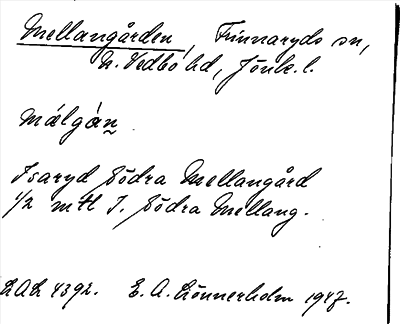 Mellangården, Finnaryds sn,
N. Vedbo hd, Jönk. l.
målgán
Isaryd Södra Mellangård
1/2 mtl I. Södra Mellang.
LAL 4392. E. A. Lönnerholm 1947.